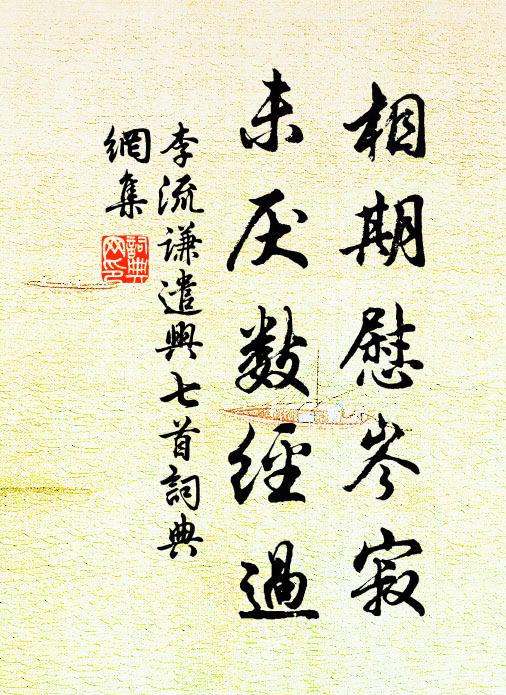 相期慰岑寂
未厌數經過
李流谦遣興七首詞典
網集
詞典網印